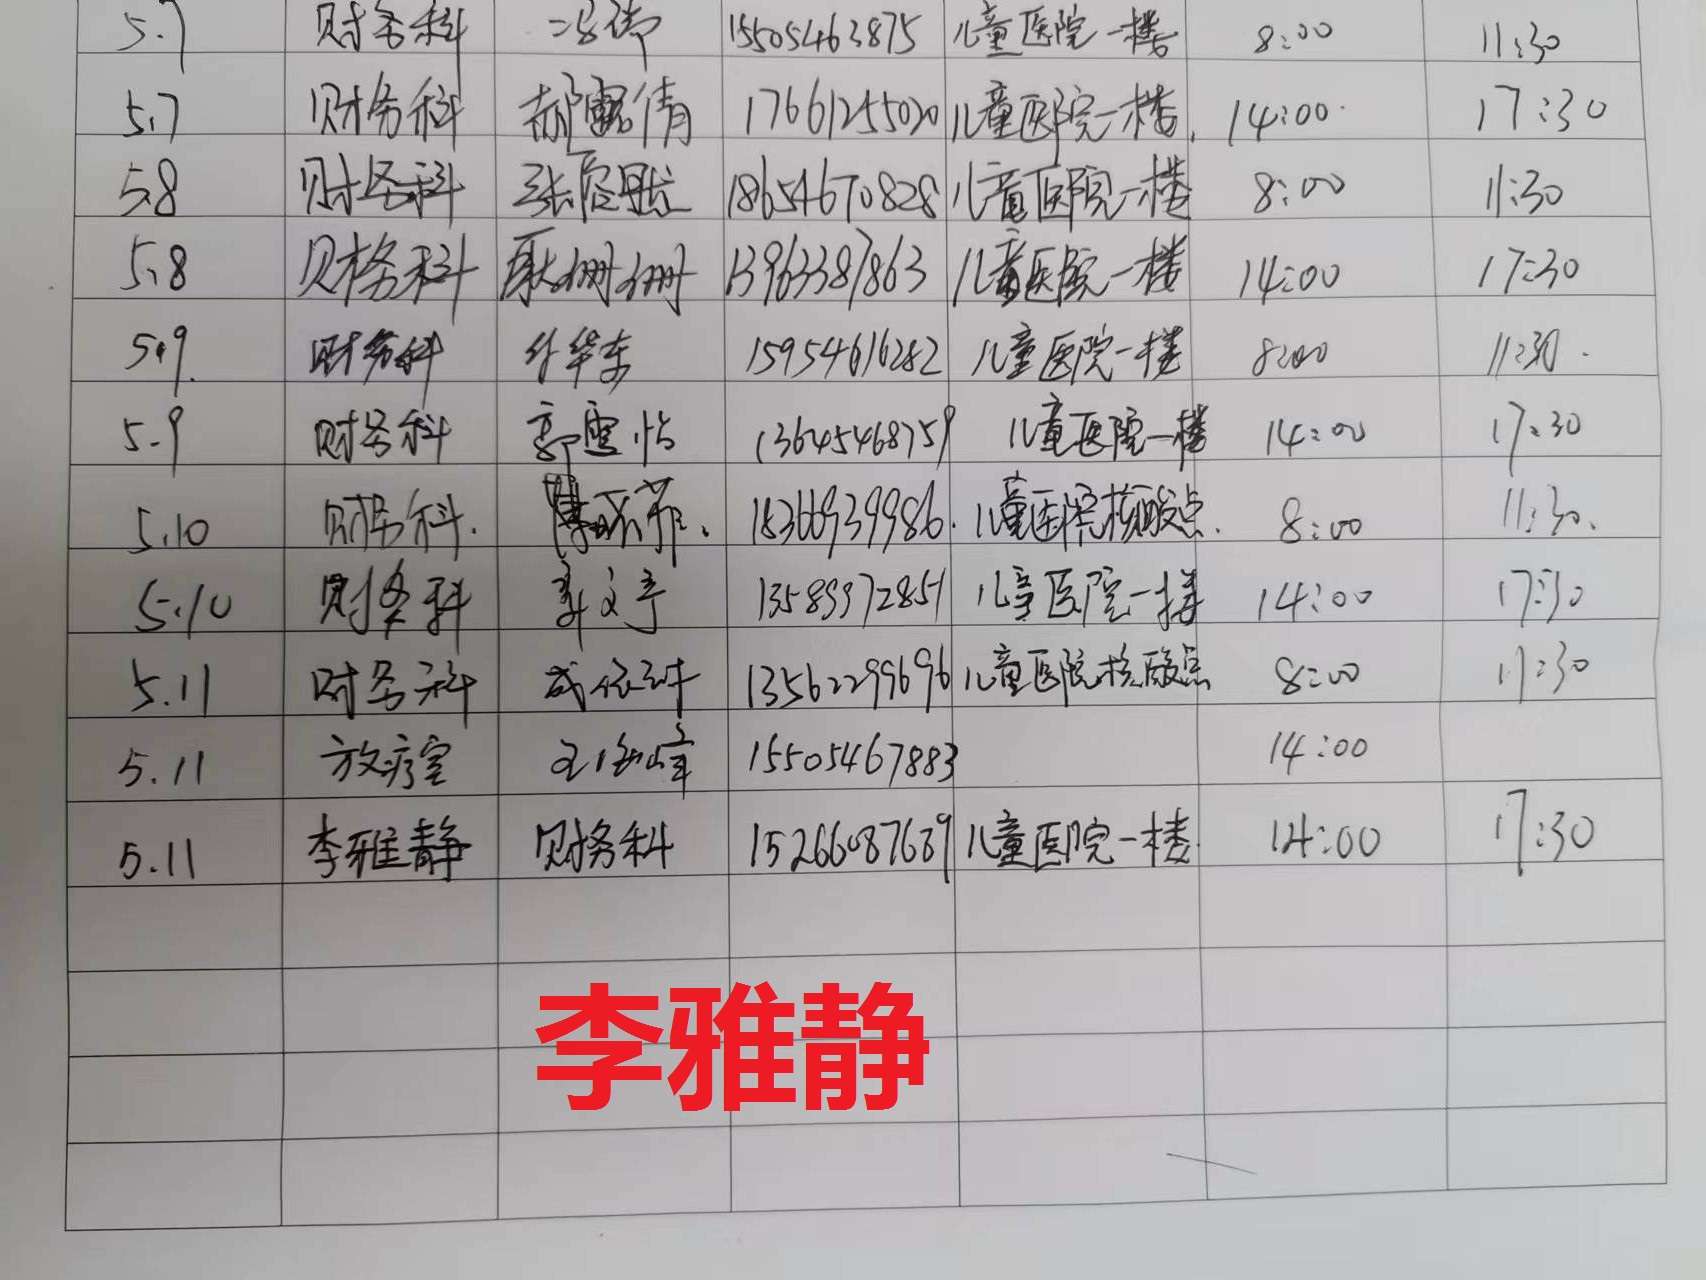 5.7 财务科 15505463875 儿童医院一楼 8:00 11:30
5.7 财务科 郝露倩 17661255020 儿童医院一楼. 14:00 17:30
5.8 财务科 18654670828 儿童医院一楼 8:00 11:30
5.8 财务科 耿姗姗 13963387863 儿童医院一楼 14:00 17:30
5.9. 财务科 华东 15954616282 儿童医院一楼 8:00 11:30.
5.9 财务科 郭雪怡 13645468759 儿童医院一楼 14:00 17:30
5.10 财务科. 18366939986. 儿童医院核酸点. 8:00 11:30.
5.10 财务科 文亭 13589972851 儿童医院一楼 14:00 17:30
5.11 财务科 成 13562299696 儿童医院核酸点 8:00 11:30
5.11 放疗室 王海峰 15505467883 14:00
5.11 李雅静 财务科 15266087689 儿童医院一楼. 14:00 17:30
李雅静